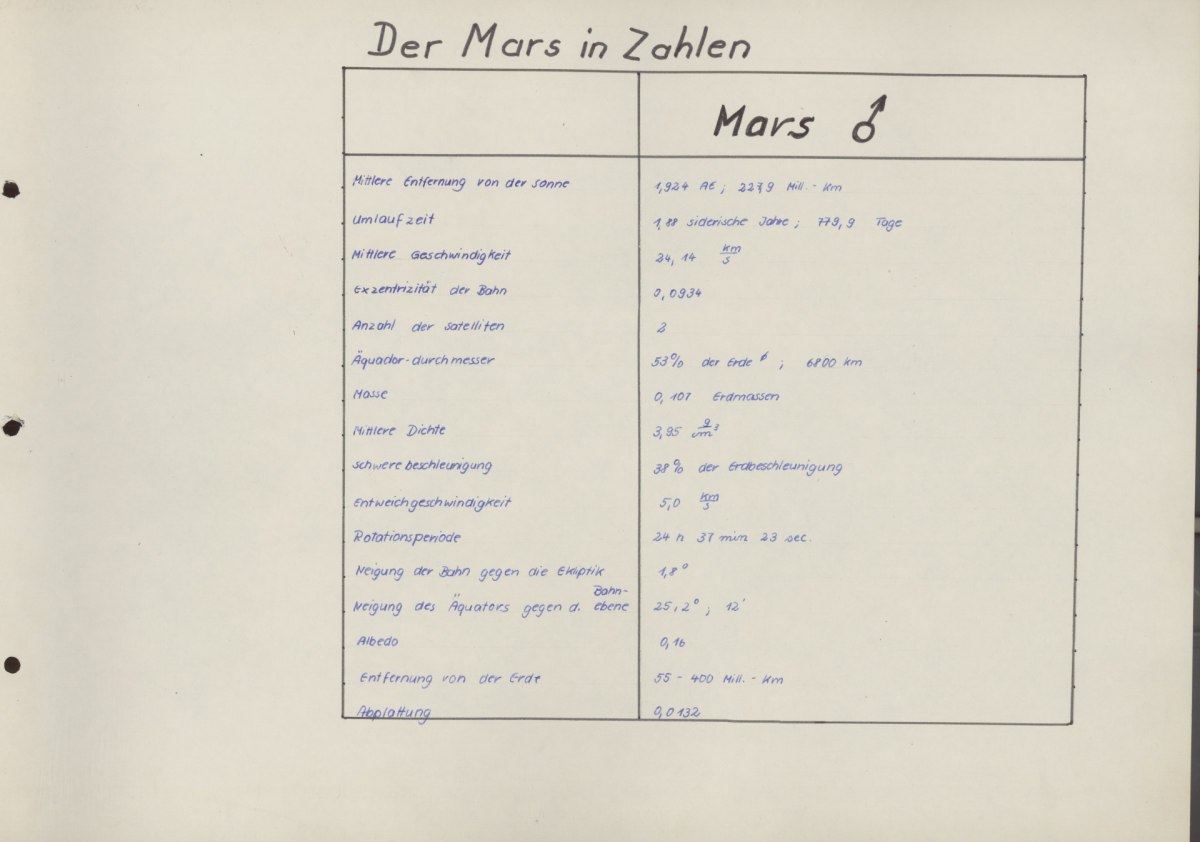 Der Mars in Zahlen
Mars ♂
Mittlere Entfernung von der Sonne 1,924 AE ; 227,9 Mill.-Km
Umlaufzeit 1,88 siderische Jahre ; 779,9 Tage
Mittlere Geschwindigkeit 24,14 km/s
Exzentrizität der Bahn 0,0934
Anzahl der Satelliten 2
Äquador-durchmesser 53% der Erde ⌀ ; 6800 km
Masse 0,107 Erdmassen
Mittlere Dichte 3,95 g/cm³
Schwerebeschleunigung 38% der Erdbeschleunigung
Entweichgeschwindigkeit 5,0 km/s
Rotationsperiode 24 h 37 min 23 sec.
Neigung der Bahn gegen die Ekliptik 1,8°
Neigung des Äquators gegen d. Bahn-ebene 25,2° ; 12'
Albedo 0,16
Entfernung von der Erde 55 - 400 Mill.-Km
Abplattung 0,0132